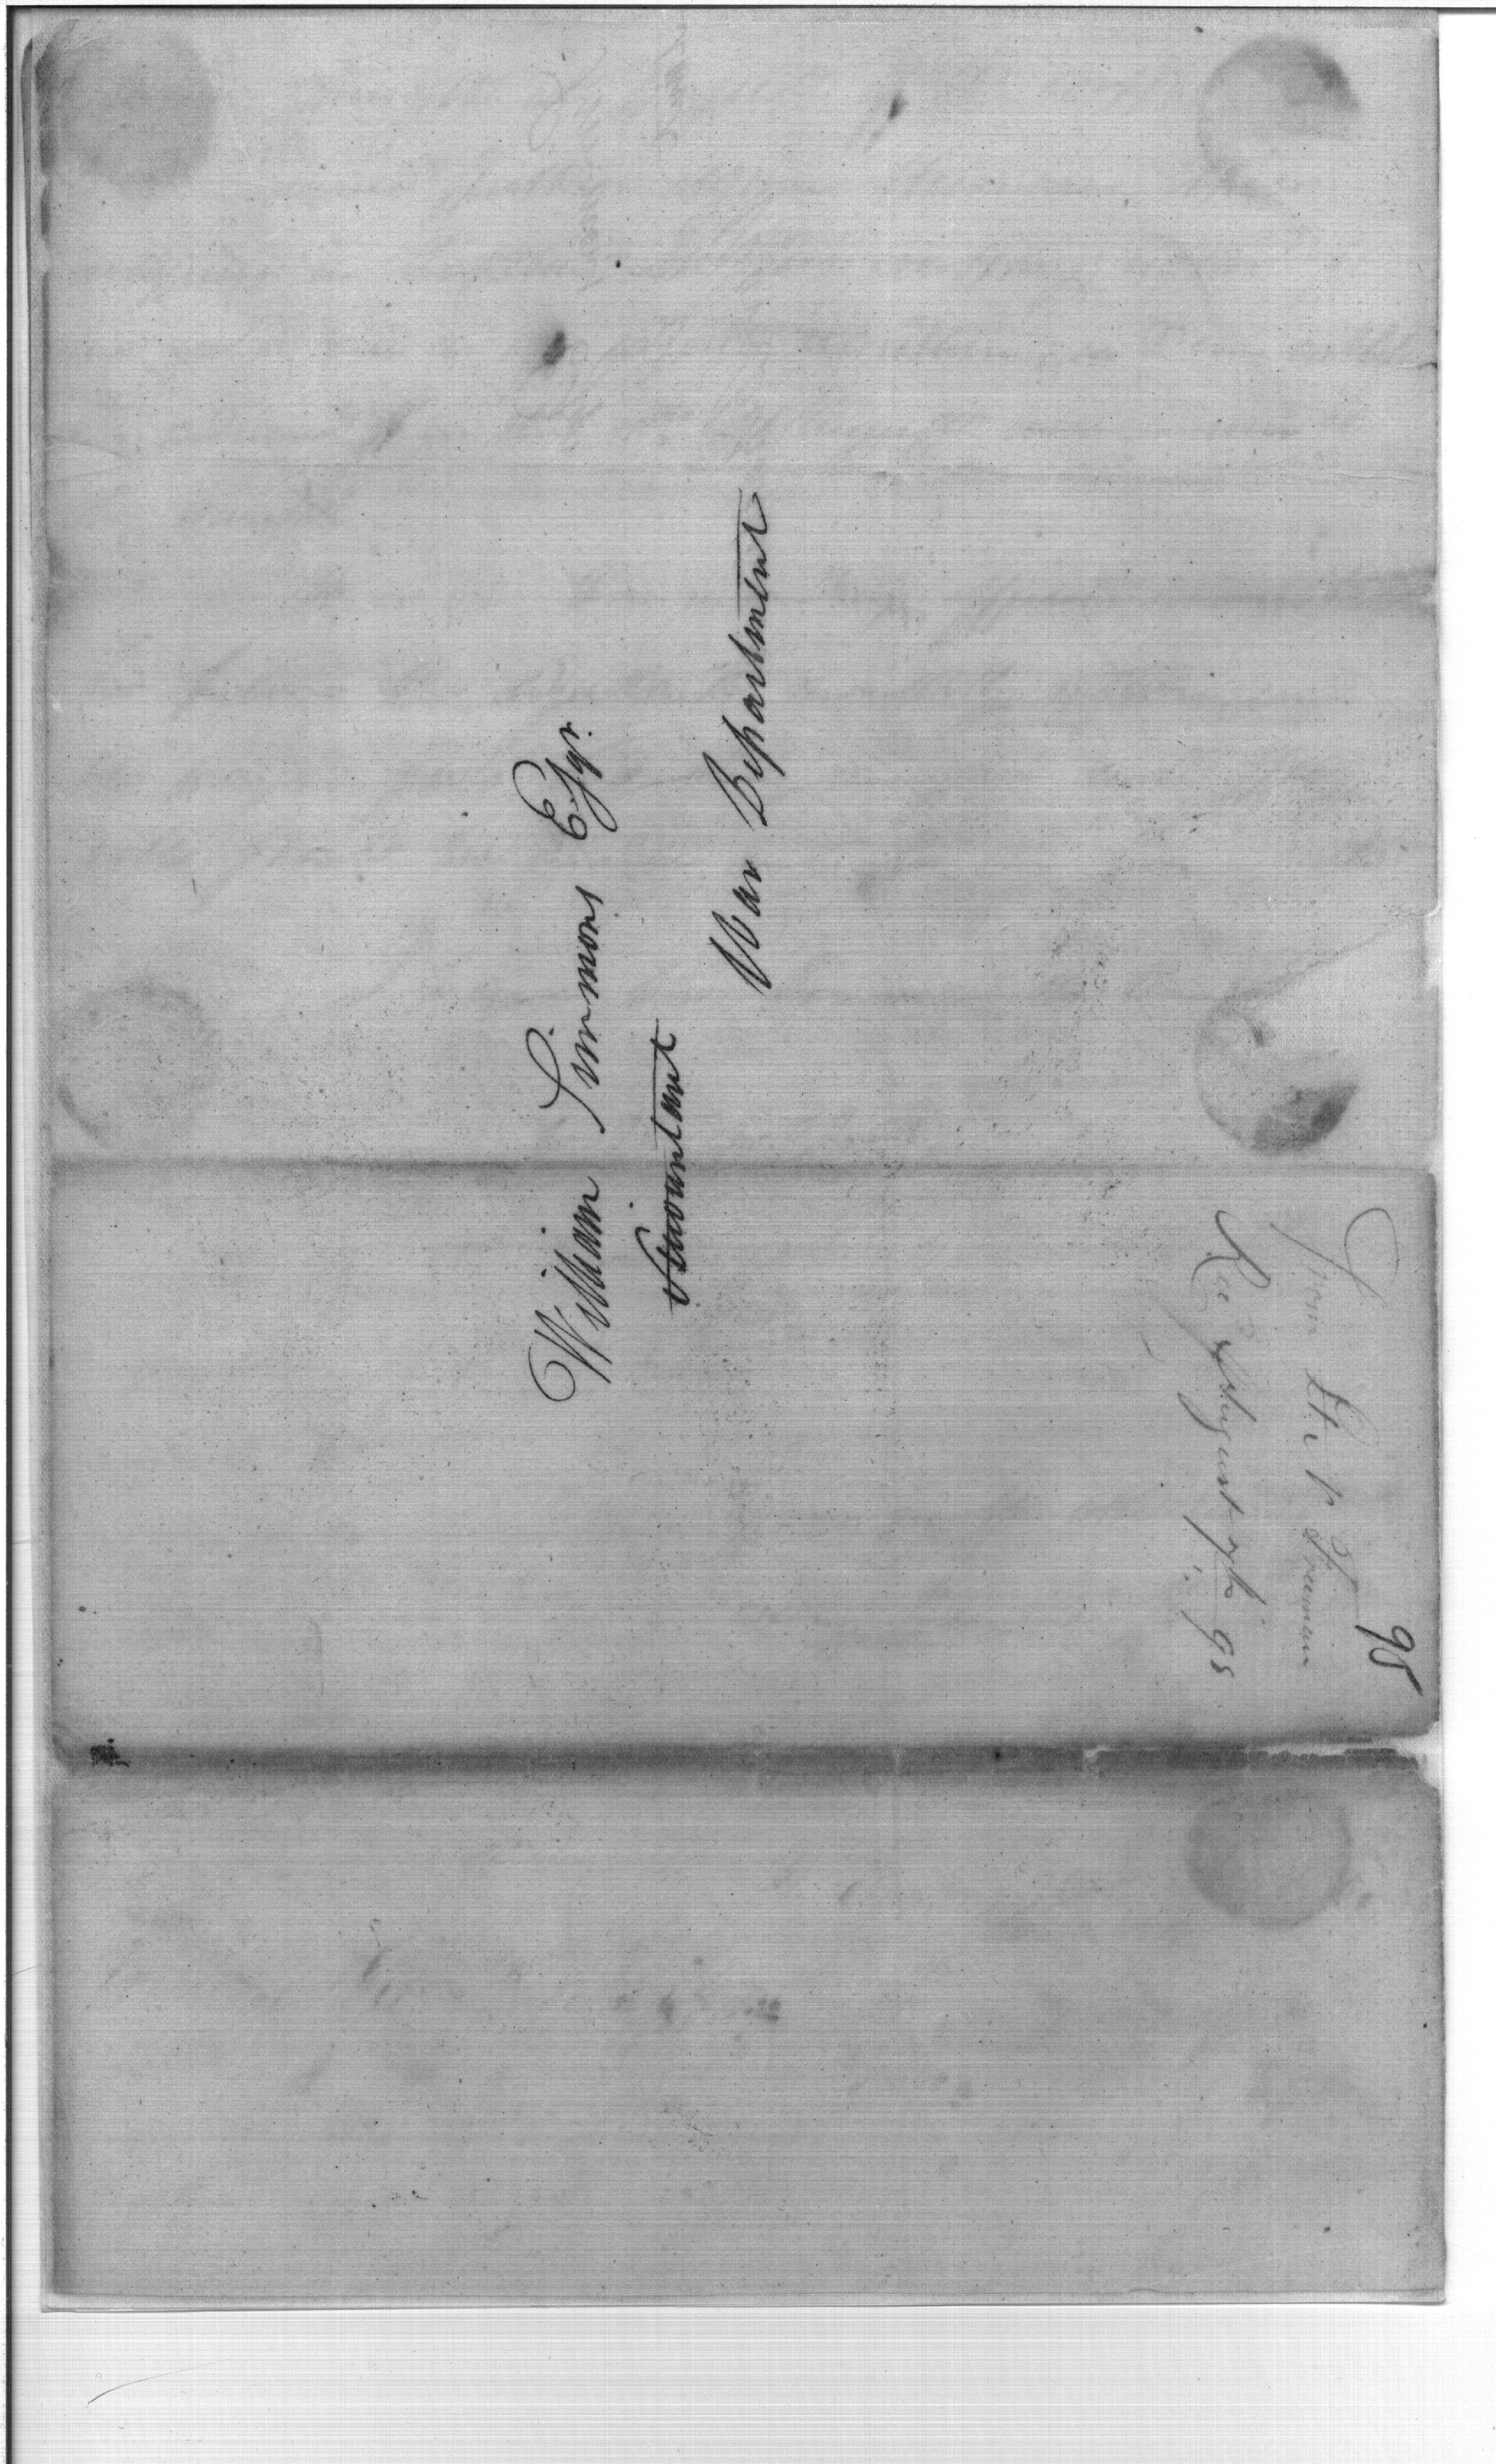 William Simmons Esqr.
Accountant
War Department
98
From
Freeman
Rec August 7th 98